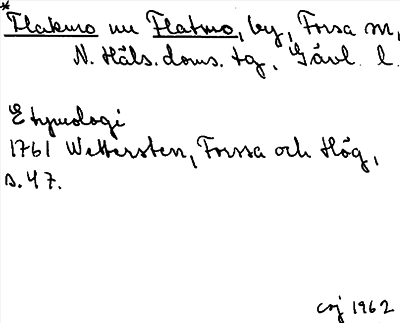 *Flakmo nu Flatmo, by, Forsa sn,
N. Häls. doms. tg, Gävl. l.
Etymologi
1761 Wettersten, Forssa och Hög,
s. 47.
csj 1962